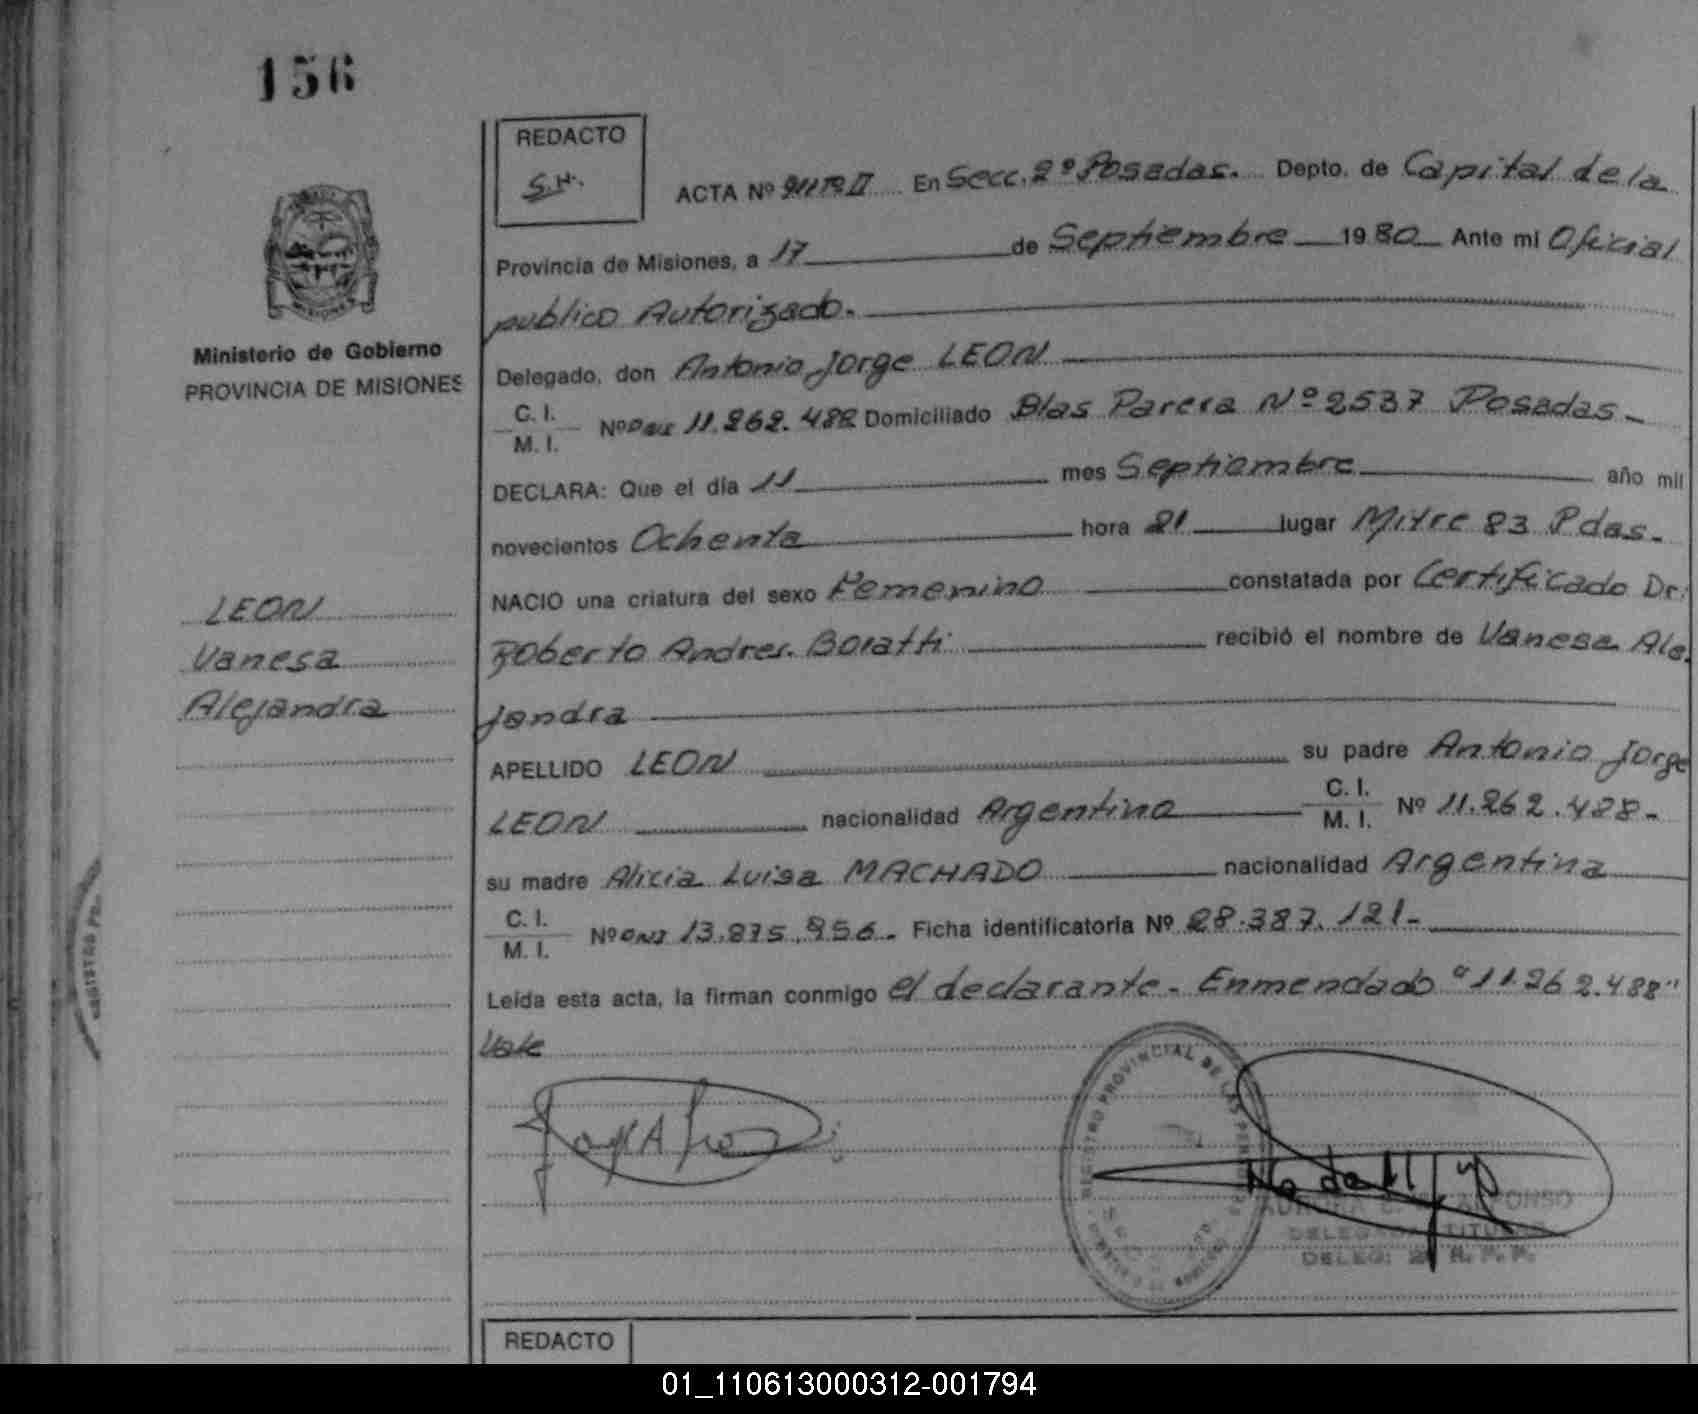 156
REDACTO
S.H.
ACTA Nº En Secc. 2º Posadas. Depto. de Capital de la
Provincia de Misiones, a 17 de Septiembre 1980 Ante mi Oficial
publico Autorizado.
Ministerio de Gobierno
PROVINCIA DE MISIONES
Delegado, don Antonio Jorge LEON
C. I.
M. I. Nº DNI 11.262.488 Domiciliado Blas Parera Nº 2537 Posadas
DECLARA: Que el día 11 mes Septiembre año mil
novecientos Ochenta hora 21 lugar Mitre 83 Pdas.
NACIO una criatura del sexo Femenino constatada por Certificado Dr.
Roberto Andres recibió el nombre de Vanesa Ale
jandra
LEON
Vanesa
Alejandra
APELLIDO LEON su padre Antonio Jorge
LEON nacionalidad Argentina C. I.
M. I. Nº 11.262.488.
su madre Alicia Luisa MACHADO nacionalidad Argentina
C. I.
M. I. Nº DNI 13.875.956. Ficha identificatoria Nº 28.387.121.
Leída esta acta, la firman conmigo el declarante. Enmendado "11.262.488"
Vale
REGISTRO PROVINCIAL DE LAS
DELEGADA TITULAR
DELEG: 2ª R. P. P.
REDACTO
01_110613000312-001794